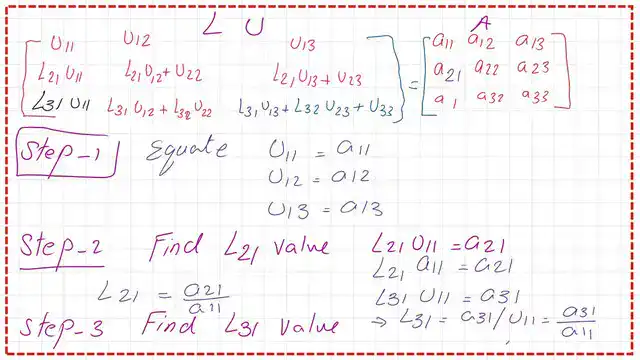 L U A
U11 U12 U13 a11 a12 a13
L21 U11 L21 U12 + U22 L21 U13 + U23 = a21 a22 a23
L31 U11 L31 U12 + L32 U22 L31 U13 + L32 U23 + U33 a 1 a32 a33
Step-1 Equate U11 = a11
U12 = a12
U13 = a13
Step-2 Find L21 value L21 U11 = a21
L21 a11 = a21
L21 = a21/a11 L31 U11 = a31
Step-3 Find L31 value ⇒ L31 = a31/U11 = a31/a11